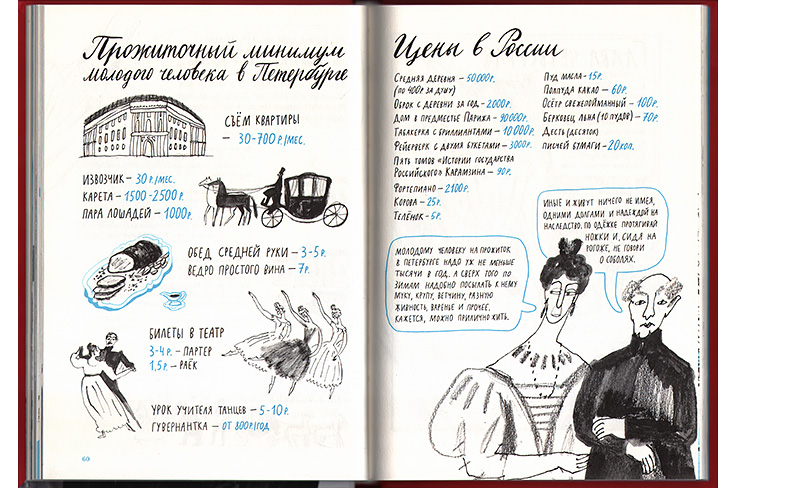 Прожиточный минимум
молодого человека в Петербурге
СЪЁМ КВАРТИРЫ
– 30-700 Р./МЕС.
ИЗВОЗЧИК – 30 Р./МЕС.
КАРЕТА – 1500-2500 Р.
ПАРА ЛОШАДЕЙ – 1000Р.
ОБЕД СРЕДНЕЙ РУКИ – 3-5Р.
ВЕДРО ПРОСТОГО ВИНА – 7Р.
БИЛЕТЫ В ТЕАТР
3-4 Р. – ПАРТЕР
1,5 Р. – РАЁК
УРОК УЧИТЕЛЯ ТАНЦЕВ – 5-10 Р.
ГУВЕРНАНТКА – ОТ 800Р./ГОД
60
Цены в России
СРЕДНЯЯ ДЕРЕВНЯ – 50 000Р.
(ПО 400Р ЗА ДУШУ)
ОБРОК С ДЕРЕВНИ ЗА ГОД – 2000Р.
ДОМ В ПРЕДМЕСТЬЕ ПАРИЖА – 90000Р.
ТАБАКЕРКА С БРИЛЛИАНТАМИ – 10 000Р.
ФЕЙЕРВЕРК С ДВУМЯ БУКЕТАМИ – 3000Р.
ПЯТЬ ТОМОВ «ИСТОРИИ ГОСУДАРСТВА
РОССИЙСКОГО» КАРАМЗИНА – 90Р.
ФОРТЕПИАНО – 2100Р.
КОРОВА – 25Р.
ТЕЛЁНОК – 5Р.
ПУД МАСЛА – 15Р.
ПОЛПУДА КАКАО – 60Р.
ОСЁТР СВЕЖЕПОЙМАННЫЙ – 100Р.
БЕРКОВЕЦ ЛЬНА (10 ПУДОВ) – 70Р.
ДЕСТЬ (ДЕСЯТОК)
ПИСЧЕЙ БУМАГИ – 20 КОП.
МОЛОДОМУ ЧЕЛОВЕКУ НА ПРОЖИТОК
В ПЕТЕРБУРГЕ НАДО УЖ НЕ МЕНЬШЕ
ТЫСЯЧИ В ГОД, А СВЕРХ ТОГО ПО
ЗИМАМ НАДОБНО ПОСЫЛАТЬ К НЕМУ
МУКУ, КРУПУ, ВЕТЧИНУ, РАЗНУЮ
ЖИВНОСТЬ, ВАРЕНЬЕ И ПРОЧЕЕ,
КАЖЕТСЯ, МОЖНО ПРИЛИЧНО ЖИТЬ.
ИНЫЕ И ЖИВУТ НИЧЕГО НЕ ИМЕЯ,
ОДНИМИ ДОЛГАМИ И НАДЕЖДОЙ НА
НАСЛЕДСТВО. ПО ОДЁЖКЕ ПРОТЯГИВАЙ
НОЖКИ И, СИДЯ НА
РОГОЖЕ, НЕ ГОВОРИ
О СОБОЛЯХ.